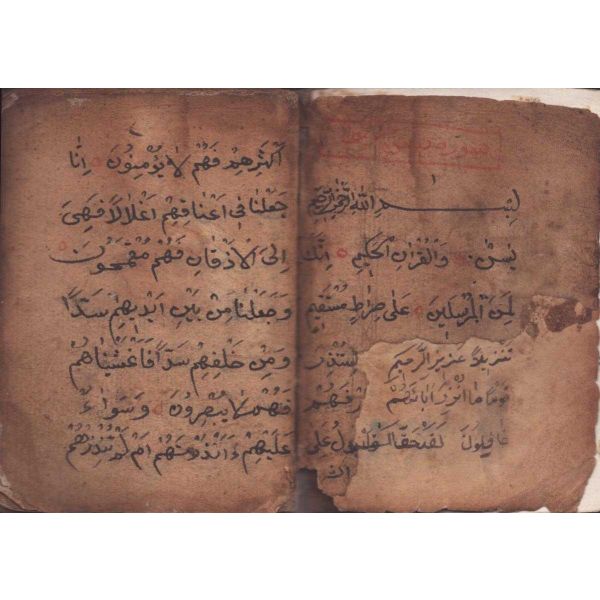 ١
بسم الله الرحمن الرحيم
يس وَالْقُرْآنِ الْحَكِيمِ إِنَّكَ
لَمِنَ الْمُرْسَلِينَ عَلَى صِرَاطٍ مُسْتَقِيمٍ
تنزيل عزيز الرحيم لِتُنْذِرَ
قوما ما انذر ابائهم فَهُمْ
غافلون لقد حق القول على
اكثر
أَكْثَرِهِمْ فَهُمْ لَا يُؤْمِنُونَ إِنَّا
جَعَلْنَا فِي أَعْنَاقِهِمْ أَغْلَالًا فَهِيَ
إِلَى الْأَذْقَانِ فَهُمْ مُقْمَحُونَ
وَجَعَلْنَا مِنْ بَيْنِ أَيْدِيهِمْ سَدًّا
وَمِنْ خَلْفِهِمْ سَدًّا فَأَغْشَيْنَاهُمْ
فَهُمْ لَا يُبْصِرُونَ وَسَوَاءٌ
عَلَيْهِمْ ءَأَنْذَرْتَهُمْ أَمْ لَمْ تُنْذِرْهُمْ